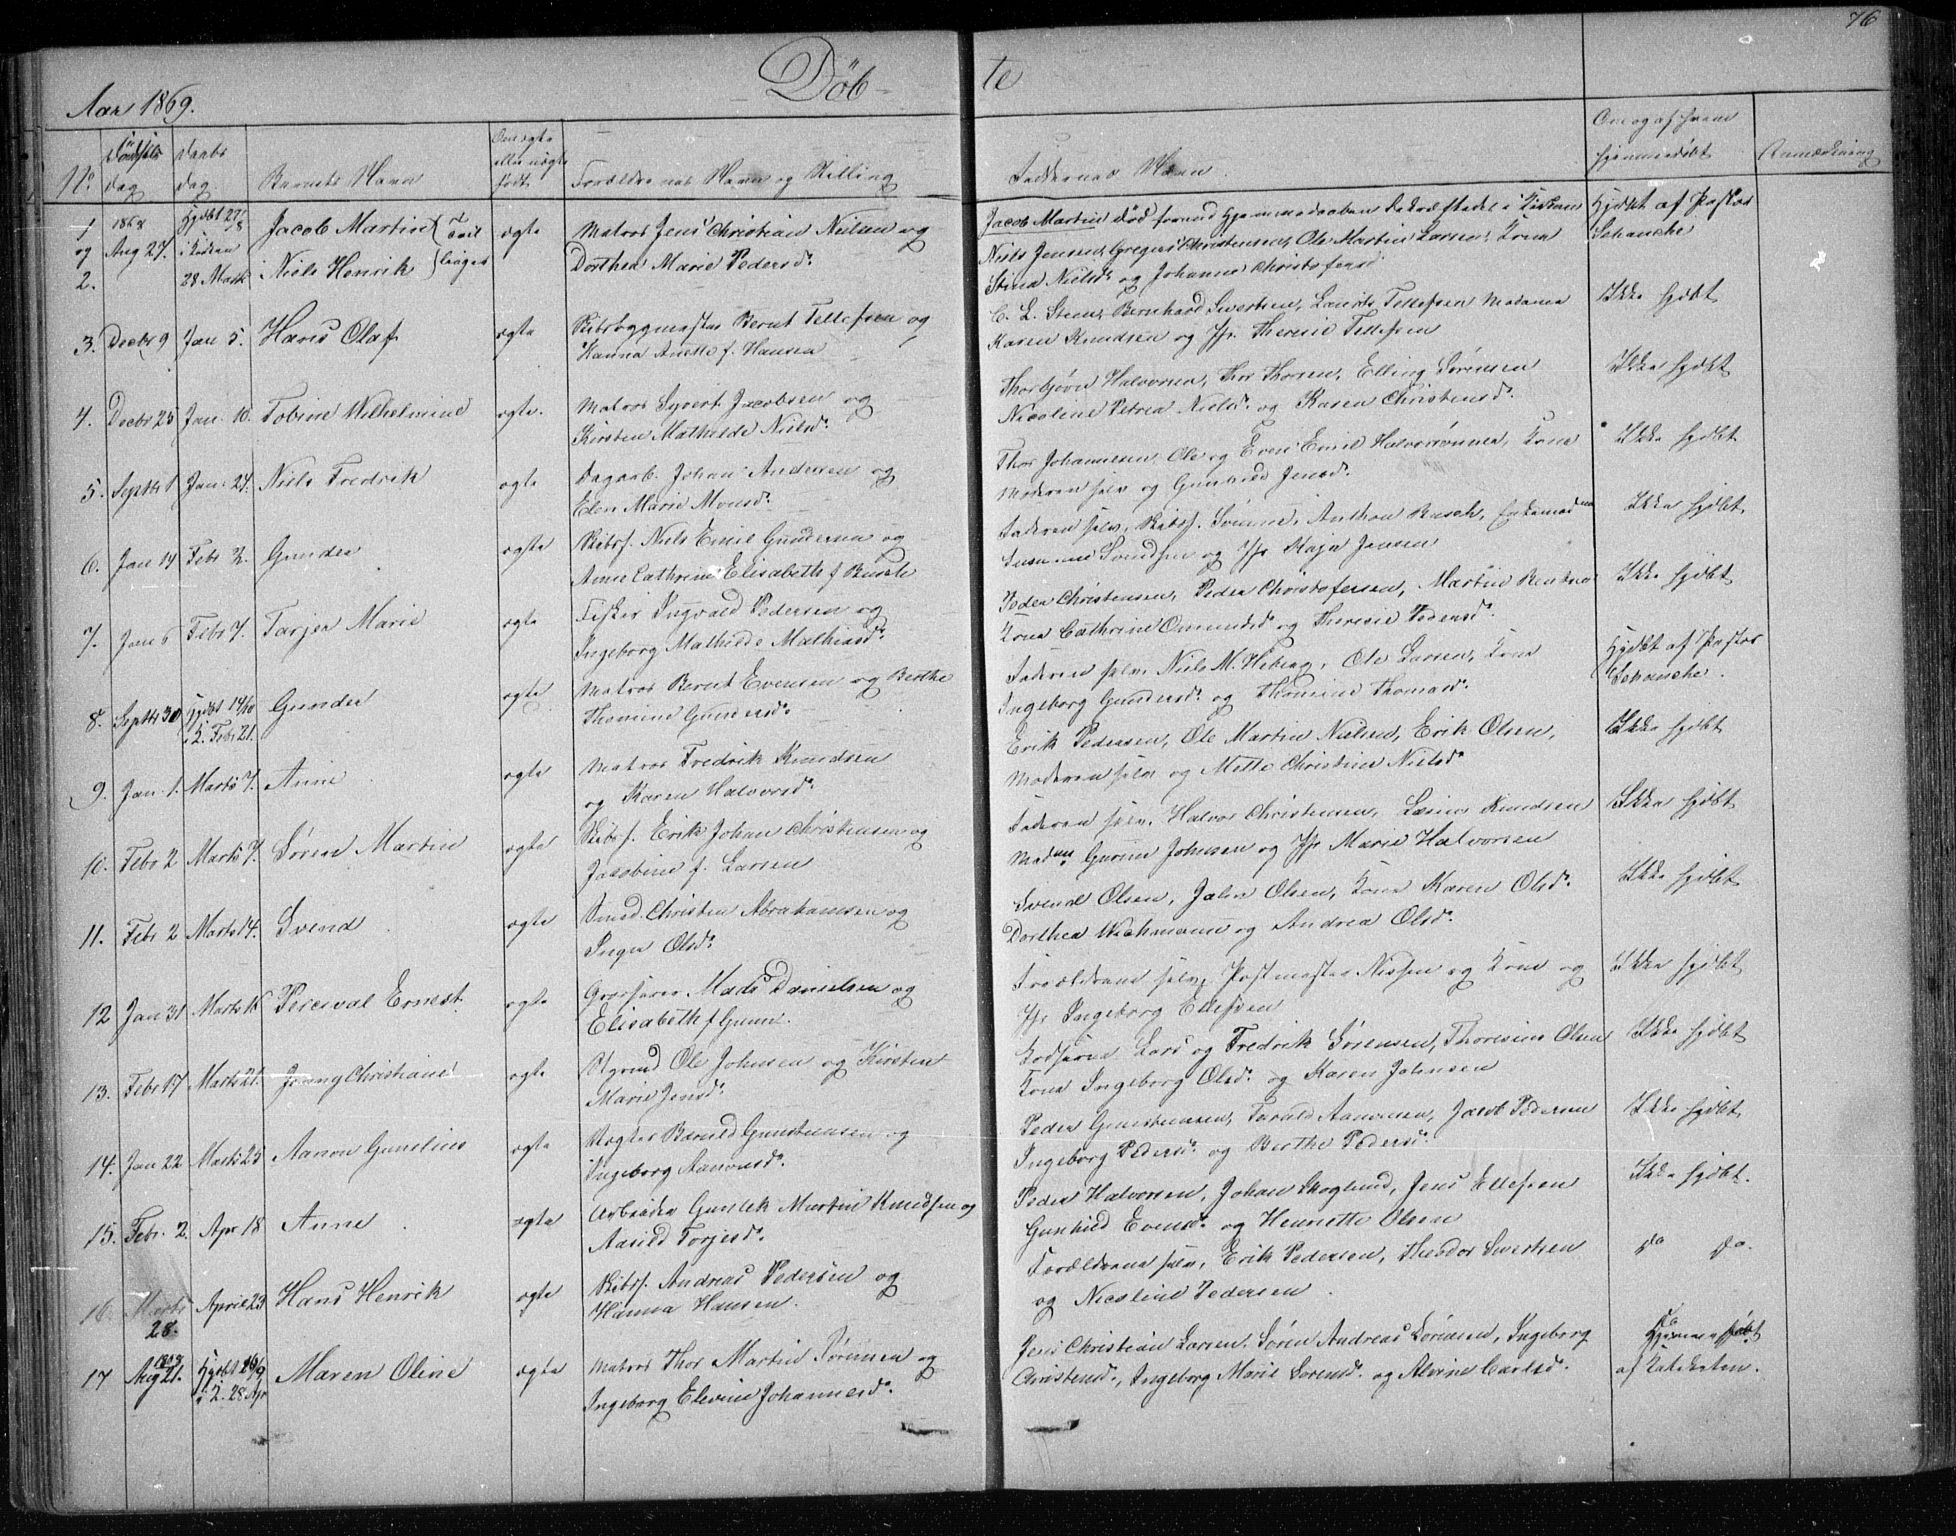 76
Döbte
Aar 1869.
No Födsels dag Daabs dag Barnets Navn Om ægte eller uægte födt Forældrenes Navn og Stilling Faddernes Navn Om og af hvem hjemmedöbt Anmærkning
1 1868 Hjdbt 27/8 Jacob Martin Tvil ægte Matros Jens Christian Nielsen og Jacob Martin död forend Hjemmedaaben bekræftedes i Kirken Hjdbt af Pastor
og Aug 27. i Kirken Niels Henrik linger Dorthea Marie Pedersd. Niels Jensen, Gregers Christensen, Ole Martin Larsen, Kone Schanche
2. 28 Marts Stina Nielsd. og Johanne Christofersd.
3. Decbr 9 Jan 5. Hans Olaf ægte Skibsbyggmester Bernt Tellefsen og C. L. Steen, Bernhard Sivertsen, Laurits Tellefsen Madame Ikke hjdbt
Hanna Anette f. Hansen Karen Knudsen og Jfr. Therese Tellefsen
4. Decbr 25 Jan. 10. Tobine Wilhelmine ægte. Matros Syvert Jacobsen og Thorbjörn Halvorsen, Thor Thorsen, Elling Sörensen Ikke hjdbt
Kirsten Mathilde Nielsd. Nicoline Petrea Nielsd. og Karen Christensd.
5. Septbr 1 Jan. 24. Niels Fredrik ægte Dagarb. Johan Andersen og Thor Johannesen, Ole og Even Emil Halvorsönner, Kone Ikke hjdbt
Elen Marie Monsd. Moderen selv og Gunhild Jensd.
6. Jan 14 Febr 2. Gunder ægte Skibsf. Niels Emil Gundersen og Faderen selv, Skibsf. Sömme, Anthon Busch, Enkemadme Ikke hjdbt
Anne Cathrine Elisabeth f Busch Susanne Svendsen og Jfr Kaja Jensen
7. Jan 6 Febr 7. Tarjer Marie ægte Fisker Ingvald Pedersen og Peder Christensen, Peder Christofersen, Martin Berntsen Ikke hjdbt
Ingeborg Mathilde Mathiasd. Kone Cathrine Osmundsd. og Therese Pedersd.
8. Septbr 30 Hjdbt 14/10 Gunder ægte Matros Bernt Evensen og Berthe Faderen selv, Niels M. Heberg, Ole Larsen, Kone Hjdbt af Pastor
i K. Febr 21. Thomine Gundersd. Ingeborg Gundersd. og Thomine Thomasd. Schanche.
9. Jan 1. Marts 7. Anne ægte Matros Fredrik Knudsen Erik Pedersen, Ole Martin Nielsen, Erik Olsen, Ikke hjdbt
og Karen Halvorsd. Moderen selv og Mette Christine Nielsd.
10. Febr 2 Marts 7. Sören Martin ægte Skibsf. Erik Johan Christensen og Faderen selv, Halvor Christensen, Knudsen Ikke hjdbt
Jacobine f. Larsen Madme Johnsen og Jfr Marie Halvorsen
11. Febr 2 Marts 14. Svend ægte Christen Abrahamsen og Svend Olsen, Jahn Olsen, Kone Maren Olsd. Ikke hjdbt
Inger Olsd. Dorthea Wichmann og Andrea Olsd.
12 Jan 31 Marts 16 Perceval Ernest ægte Grosserer Mads Danielsen og Forældrene selv, Postmester Nissen og Kone og Ikke hjdbt
Elisabeth f Gunn. Jfr Ingeborg Ellefsen
13. Febr 17 Marts 21. Jenny Christiane ægte Ole Johnsen og Kirsten Lars og Fredrik Sörensen, Thoresine Olsen Ikke hjdbt
Marie Jensd. Kone Ingeborg Olsd. og Karen Johnsen
14. Jan 22 Marts 25 Aanon Gunelius ægte Gunstensen og Peder Gunstensen, Aanonsen, Jacob Pedersen Ikke hjdbt
Ingeborg Aanonsd. Ingeborg Pedersd. og Berthe Pedersd.
15. Febr. 2. Apr 18 Anne ægte Arbeider Gunlek Martin Knudsen og Peder Halvorsen, Johan Skoglund, Jens Ellefsen Ikke hjdbt.
Aasild Torjesd. Gunhild Evensd. og Henriette Olsen
16. Marts 28. April 23 Hans Henrik ægte Skibsf. Andreas Pedersen og Forældrene selv, Erik Pedersen, Theodor Sivertsen do do.
Hanna Hansen. og Nicoline Pedersen
17 1868 Aug 21. Hjdbt 26/9 Maren Oline ægte Matros Thor Martin Sörensen og Jens Christian Larsen, Sören Andreas Sörensen, Ingeborg Hjemmedöbt
i K. 28. Apr Ingeborg Elevine Johannesd. Christensd., Ingeborg Marie Sörensd. og Alvine Carlsd. af Kateketen.